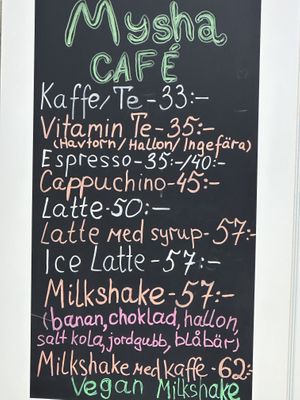 Mysha
CAFÉ
Kaffe/Te-33:-
Vitamin Te-35:-
(Havtorn/Hallon/Ingefära)
Espresso-35:-/40:-
Cappuchino-45:-
Latte-50:-
Latte med syrup-57:-
Ice Latte-57:-
Milkshake-57:-
(banan, choklad, hallon,
salt kola, jordgubb, blåbär)
Milkshake med kaffe-62:-
Vegan Milkshake